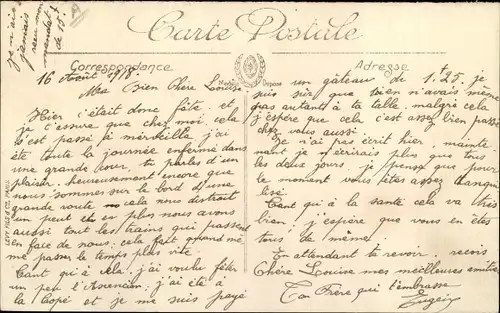 je n'ai
jamais
reçu mon
mandat
de 15f
Carte Postale
Correspondance
Adresse
16 Août 1918.
Ma Bien Chère Louise
Hier c'était donc fête et
je t'assure que chez moi, cela
s'est passé à merveille j'ai
été toute la journée enfermé dans
une grande cour, tu parles d'un
plaisir, heureusement encore que
nous sommes sur le bord d'une
grande route cela nous distrait
un peut et en plus nous avons
aussi tout les trains qui passent
en face de nous, cela fait quand même
passer le temps plus vite.
Tant qu'à cela, j'ai voulu fêter
un peu l'Ascencion, j'ai été a
la Copé et je me suis payé
un gâteau de 1f25. je
suis sûr que toi en n'avais même
pas autant à ta table, malgré cela
j'espère que cela c'est assez bien passé
chez vous aussi.
Je n'ai pas écrit hier, mainte
nant je n'écrirais plus que tous
les deux jours, je pense que pour
le moment vous êtes assez tranqui
lisé
Tant qu'à la santé cela va très
bien, j'espère que vous en êtes
tous de même.
En attendant te revoir, reçois
Chère Louise mes meilleures amitiés
Ton Frère qui t'embrasse
Eugène
LEVY FILS & CO. PARIS